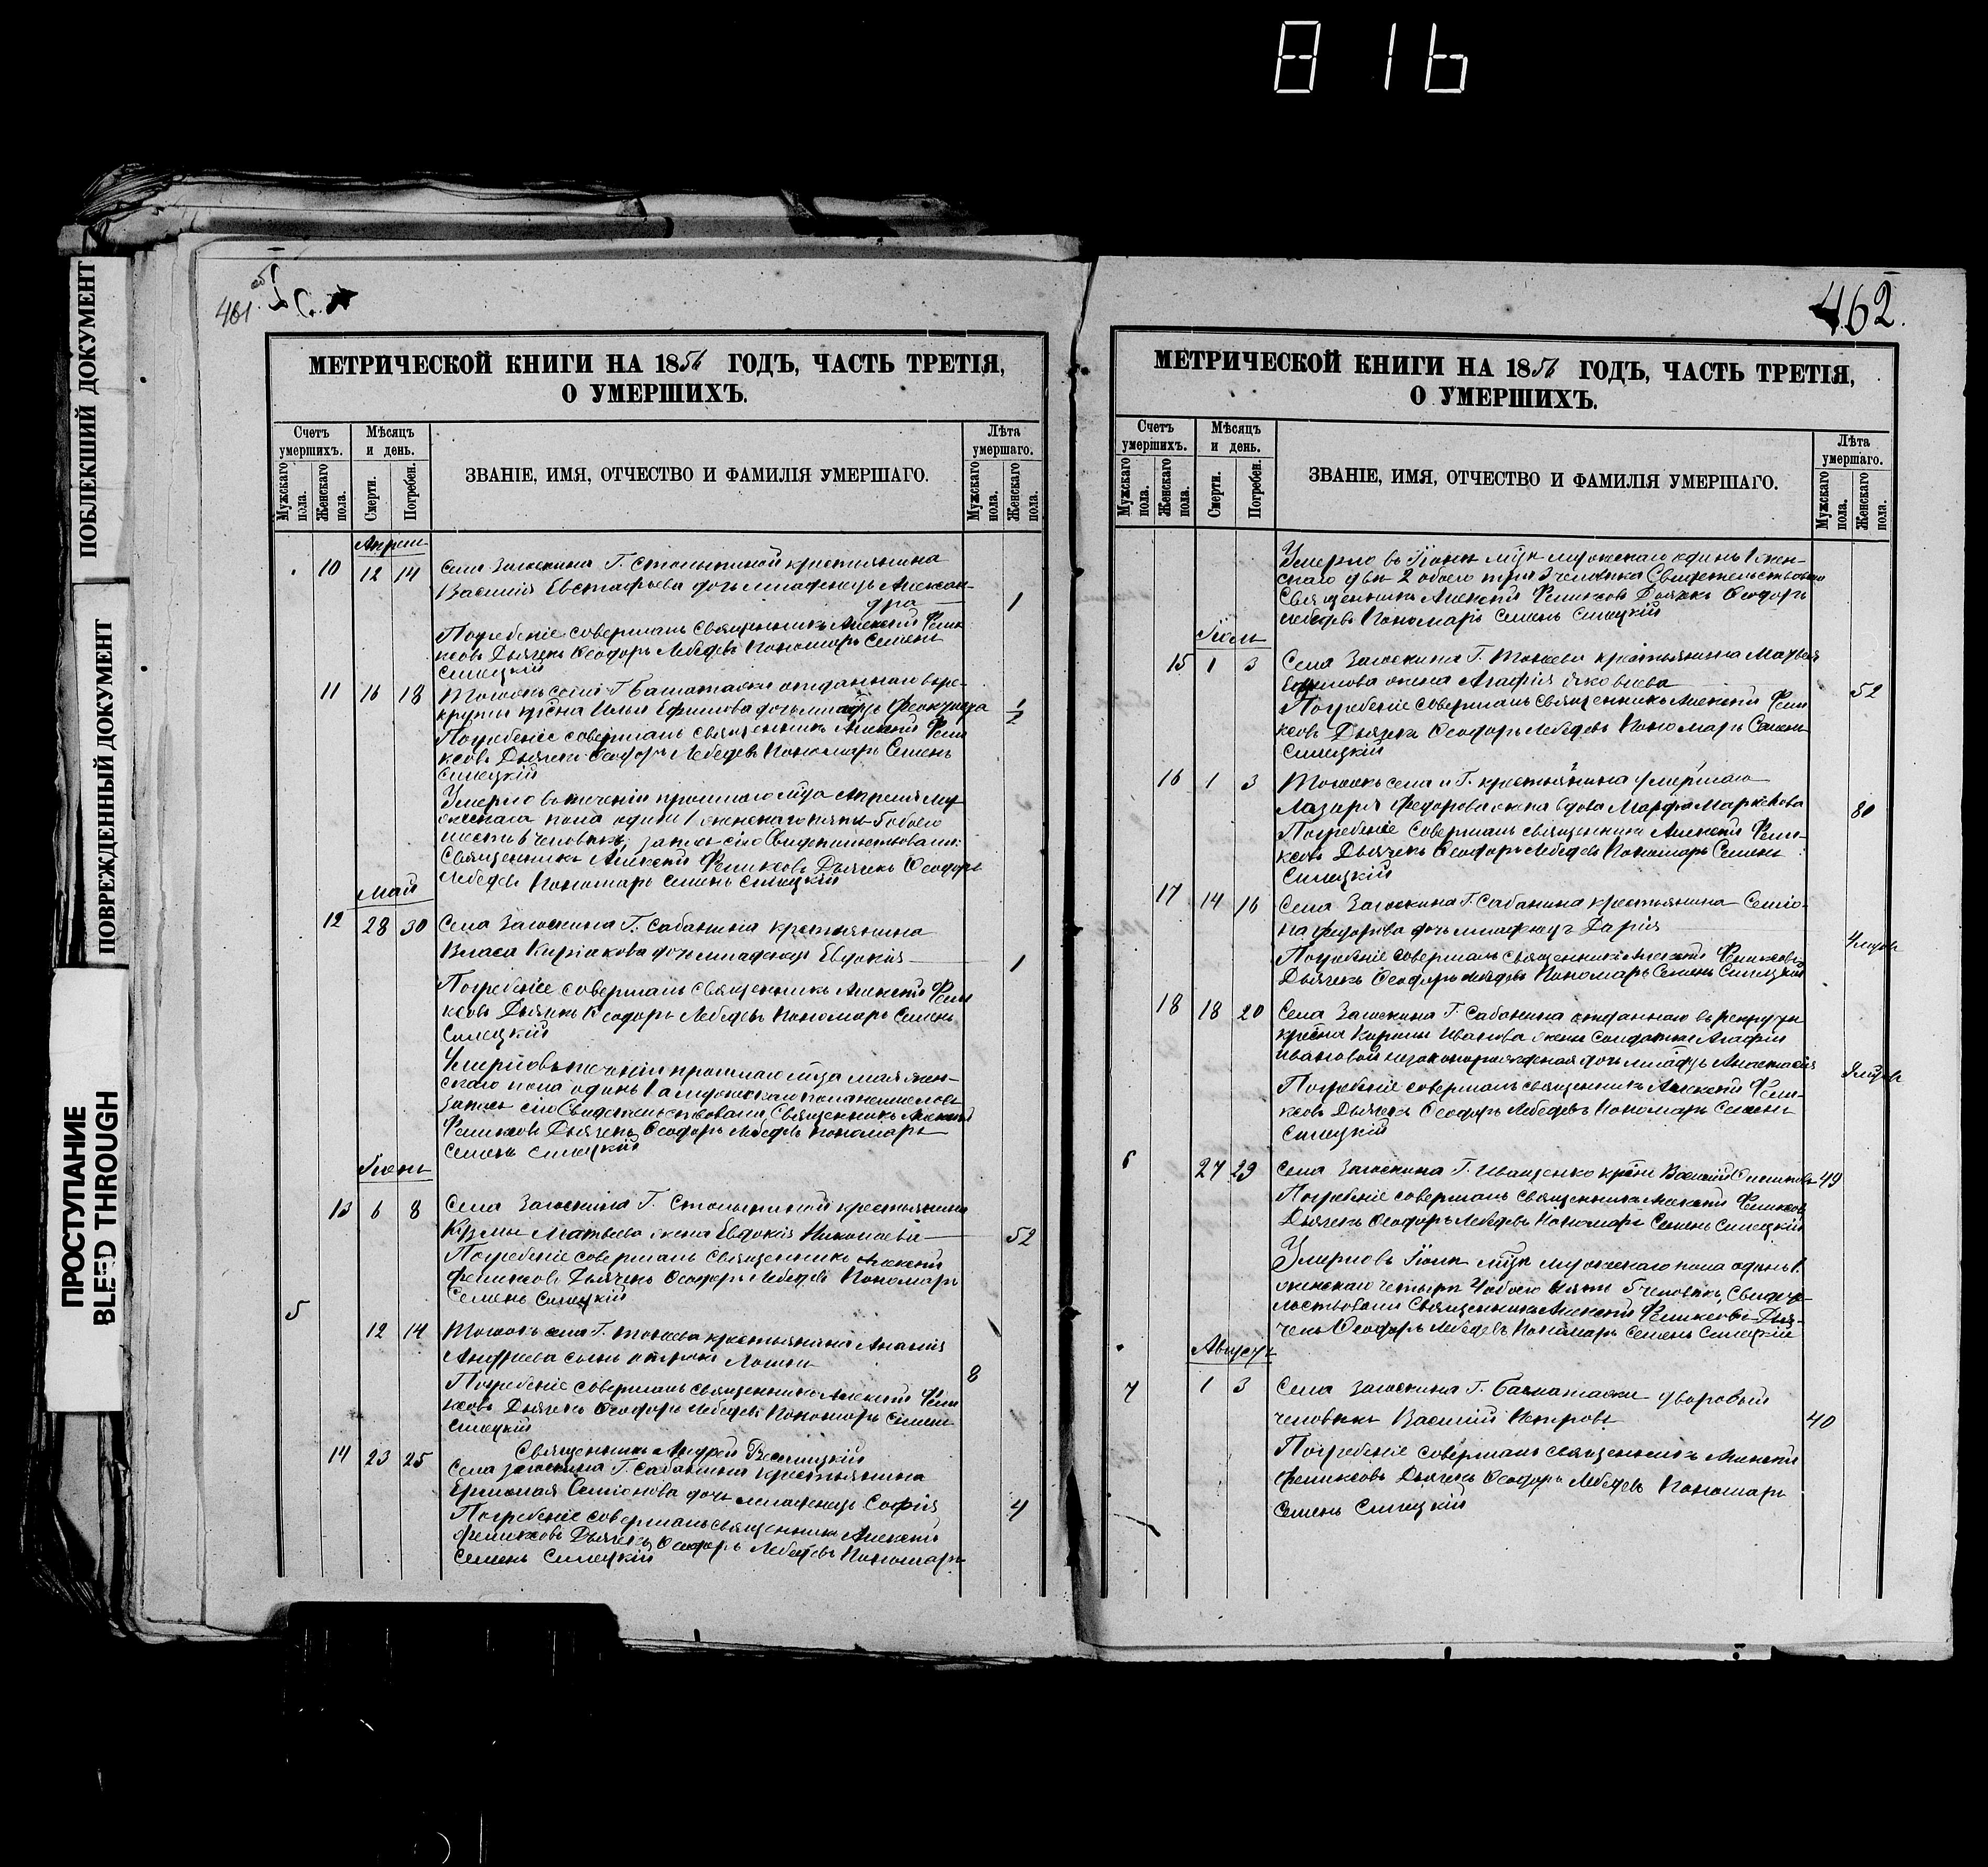 816
ПОБЛЕКШИЙ ДОКУМЕНТ
ПОВРЕЖДЕННЫЙ ДОКУМЕНТ
ПРОСТУПАНИЕ
BLEED THROUGH
461 об
МЕТРИЧЕСКОЙ КНИГИ НА 1856 ГОДЪ, ЧАСТЬ ТРЕТІЯ,
О УМЕРШИХЪ.
Счетъ умершихъ.
Мѣсяцъ и день.
ЗВАНІЕ, ИМЯ, ОТЧЕСТВО И ФАМИЛІЯ УМЕРШАГО.
Лѣта умершаго.
Мужскаго пола.
Женскаго пола.
Смерти.
Погребен.
Мужскаго пола.
Женскаго пола.
Апрель
10 12 14 Села Загоскина Г. Столыпиной крестьянина
Василія Евстафьева дочь младенецъ Алексан-
дра 1
Погребеніе совершалъ Священникъ Алексѣй Фели
ксовъ Дьячекъ Ѳеодоръ Лебедевъ Пономарь Семенъ
Силецкій
11 16 18 Тогожъ села Г. отданнаго въ ре-
круты крсна Ильи Ефимова дочь младцъ 1/2
Погребеніе совершалъ Священникъ Алексѣй Фели
ксовъ Дьячекъ Ѳеодоръ Лебедевъ Пономарь Семенъ
Силецкій
Умерло въ теченіи прошлаго мца Апреля му
жескаго пола одинъ 1 женскаго пять 5 обоего
шесть 6 человѣкъ, запись сію Свидетельствовали:
Священникъ Алексѣй Феликсовъ Дьячекъ Ѳеодоръ
Лебедевъ Пономарь Семенъ Силецкій
Май
12 28 30 Села Загоскина Г. Сабанина крестьянина
Власа Киріакова дочь младенецъ Евдокія 1
Погребеніе совершалъ Священникъ Алексѣй Фели
ксовъ Дьячекъ Ѳеодоръ Лебедевъ Пономарь Семенъ
Силецкій
Умерло въ теченіи прошлаго мца мая жен-
скаго пола одинъ 1 а мужескаго пола
запись сію Свидетельствовали, Священникъ Алексѣй
Феликсовъ Дьячекъ Ѳеодоръ Лебедевъ Пономарь
Семенъ Силецкій
Іюнь
13 6 8 Села Загоскина Г. Столыпиной крестьянина
Кузмы Матвеева жена Евдокія Николаева 52
Погребеніе совершалъ Священникъ Алексѣй
Феликсовъ Дьячекъ Ѳеодоръ Лебедевъ Пономарь
Семенъ Силецкій
5
12 14 Тогожъ села Г. Токаева крестьянина Ананія
Андреева сынъ отрокъ 8
Погребеніе совершалъ Священникъ Алексѣй Фели
ксовъ Дьячекъ Ѳеодоръ Лебедевъ Пономарь Семенъ
Силецкій
Священникъ Андрей
14 23 25 Села Загоскина Г. Сабанина крестьянина
Ермолая Семіонова дочь младенецъ Софія 4
Погребеніе совершалъ священникъ Алексѣй
Феликсовъ Дьячекъ Ѳеодоръ Лебедевъ Пономарь
Семенъ Силецкій
462.
МЕТРИЧЕСКОЙ КНИГИ НА 1856 ГОДЪ, ЧАСТЬ ТРЕТІЯ,
О УМЕРШИХЪ.
Счетъ умершихъ.
Мѣсяцъ и день.
ЗВАНІЕ, ИМЯ, ОТЧЕСТВО И ФАМИЛІЯ УМЕРШАГО.
Лѣта умершаго.
Мужскаго пола.
Женскаго пола.
Смерти.
Погребен.
Мужскаго пола.
Женскаго пола.
Умерло въ Іюнѣ мцѣ мужескаго одинъ 1 жен-
скаго двѣ 2 обоего три 3 человѣка Свидетельствовали
Священникъ Алексѣй Феликсовъ Дьячекъ Ѳеодоръ
Лебедевъ Пономарь Семенъ Силецкій
Іюль
15 1 3 Села Загоскина Г. Токаева крестьянина Матвея
Ефимова жена Агафія Яковлева 52
Погребеніе совершалъ Священникъ Алексѣй Фели
ксовъ Дьячекъ Ѳеодоръ Лебедевъ Пономарь Семенъ
Силецкій
16 1 3 Тогожъ села и Г. крестьянина умершаго
Лазаря Федорова жена вдова Марфа Маркелова 80
Погребеніе совершалъ священникъ Алексѣй Фели-
ксовъ Дьячекъ Ѳеодоръ Лебедевъ Пономарь Семенъ
Силецкій
17 14 16 Села Загоскина Г. Сабанина крестьянина Семіо-
на Федорова дочь младенецъ Дарія
Погребеніе совершалъ Священникъ Алексѣй Феликсовъ
Дьячекъ Ѳеодоръ Лебедевъ Пономарь Семенъ Силецкій
18 18 20 Села Загоскина Г. Сабанина отданнаго въ рекруты
крсна Иванова жены солдатки Агафіи
Ивановой незаконорожденная дочь младцъ Анастасія
Погребеніе совершалъ священникъ Алексѣй Фели-
ксовъ Дьячекъ Ѳеодоръ Лебедевъ Пономарь Семенъ
Силецкій
6 27 29 Села Загоскина Г. Иващенко Василій 49
Погребеніе совершалъ Священникъ Алексѣй Феликсовъ
Дьячекъ Ѳеодоръ Лебедевъ Пономарь Семенъ Силецкій
Умерло въ Іюлѣ мцѣ мужескаго пола одинъ 1.
женскаго четыре 4 обоего пять 5 человѣкъ, Свидете-
льствовали Священникъ Алексѣй Феликсовъ Дья-
чекъ Ѳеодоръ Лебедевъ Пономарь Семенъ Силецкій
Августъ
7 1 3 Села Загоскина Г. дворовый
человѣкъ Василій Петровъ 40
Погребеніе совершалъ священникъ Алексѣй
Феликсовъ Дьячекъ Ѳеодоръ Лебедевъ Пономарь
Семенъ Силецкій